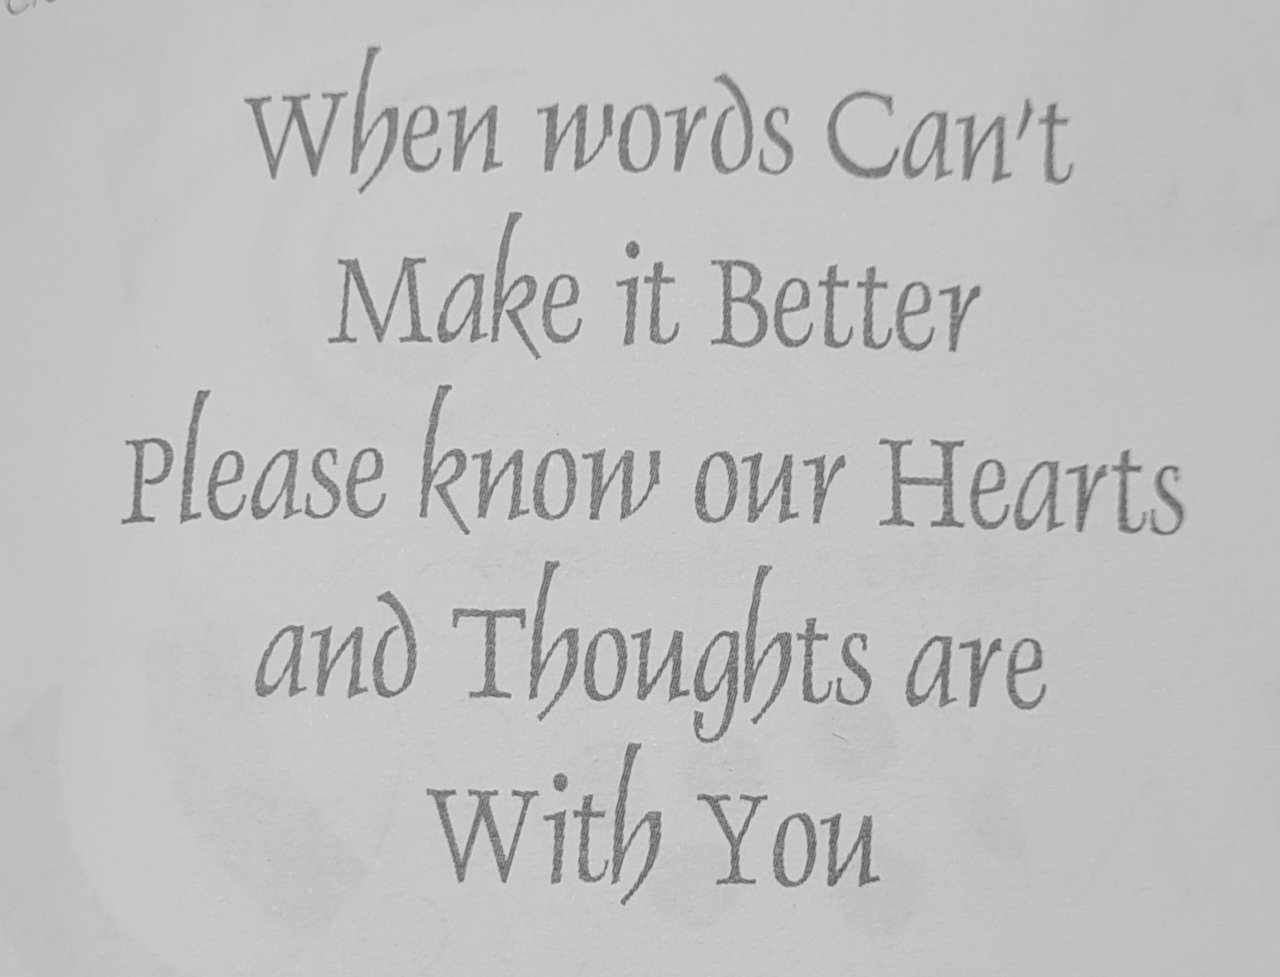 When words Can't
Make it Better
Please know our Hearts
and Thoughts are
With You